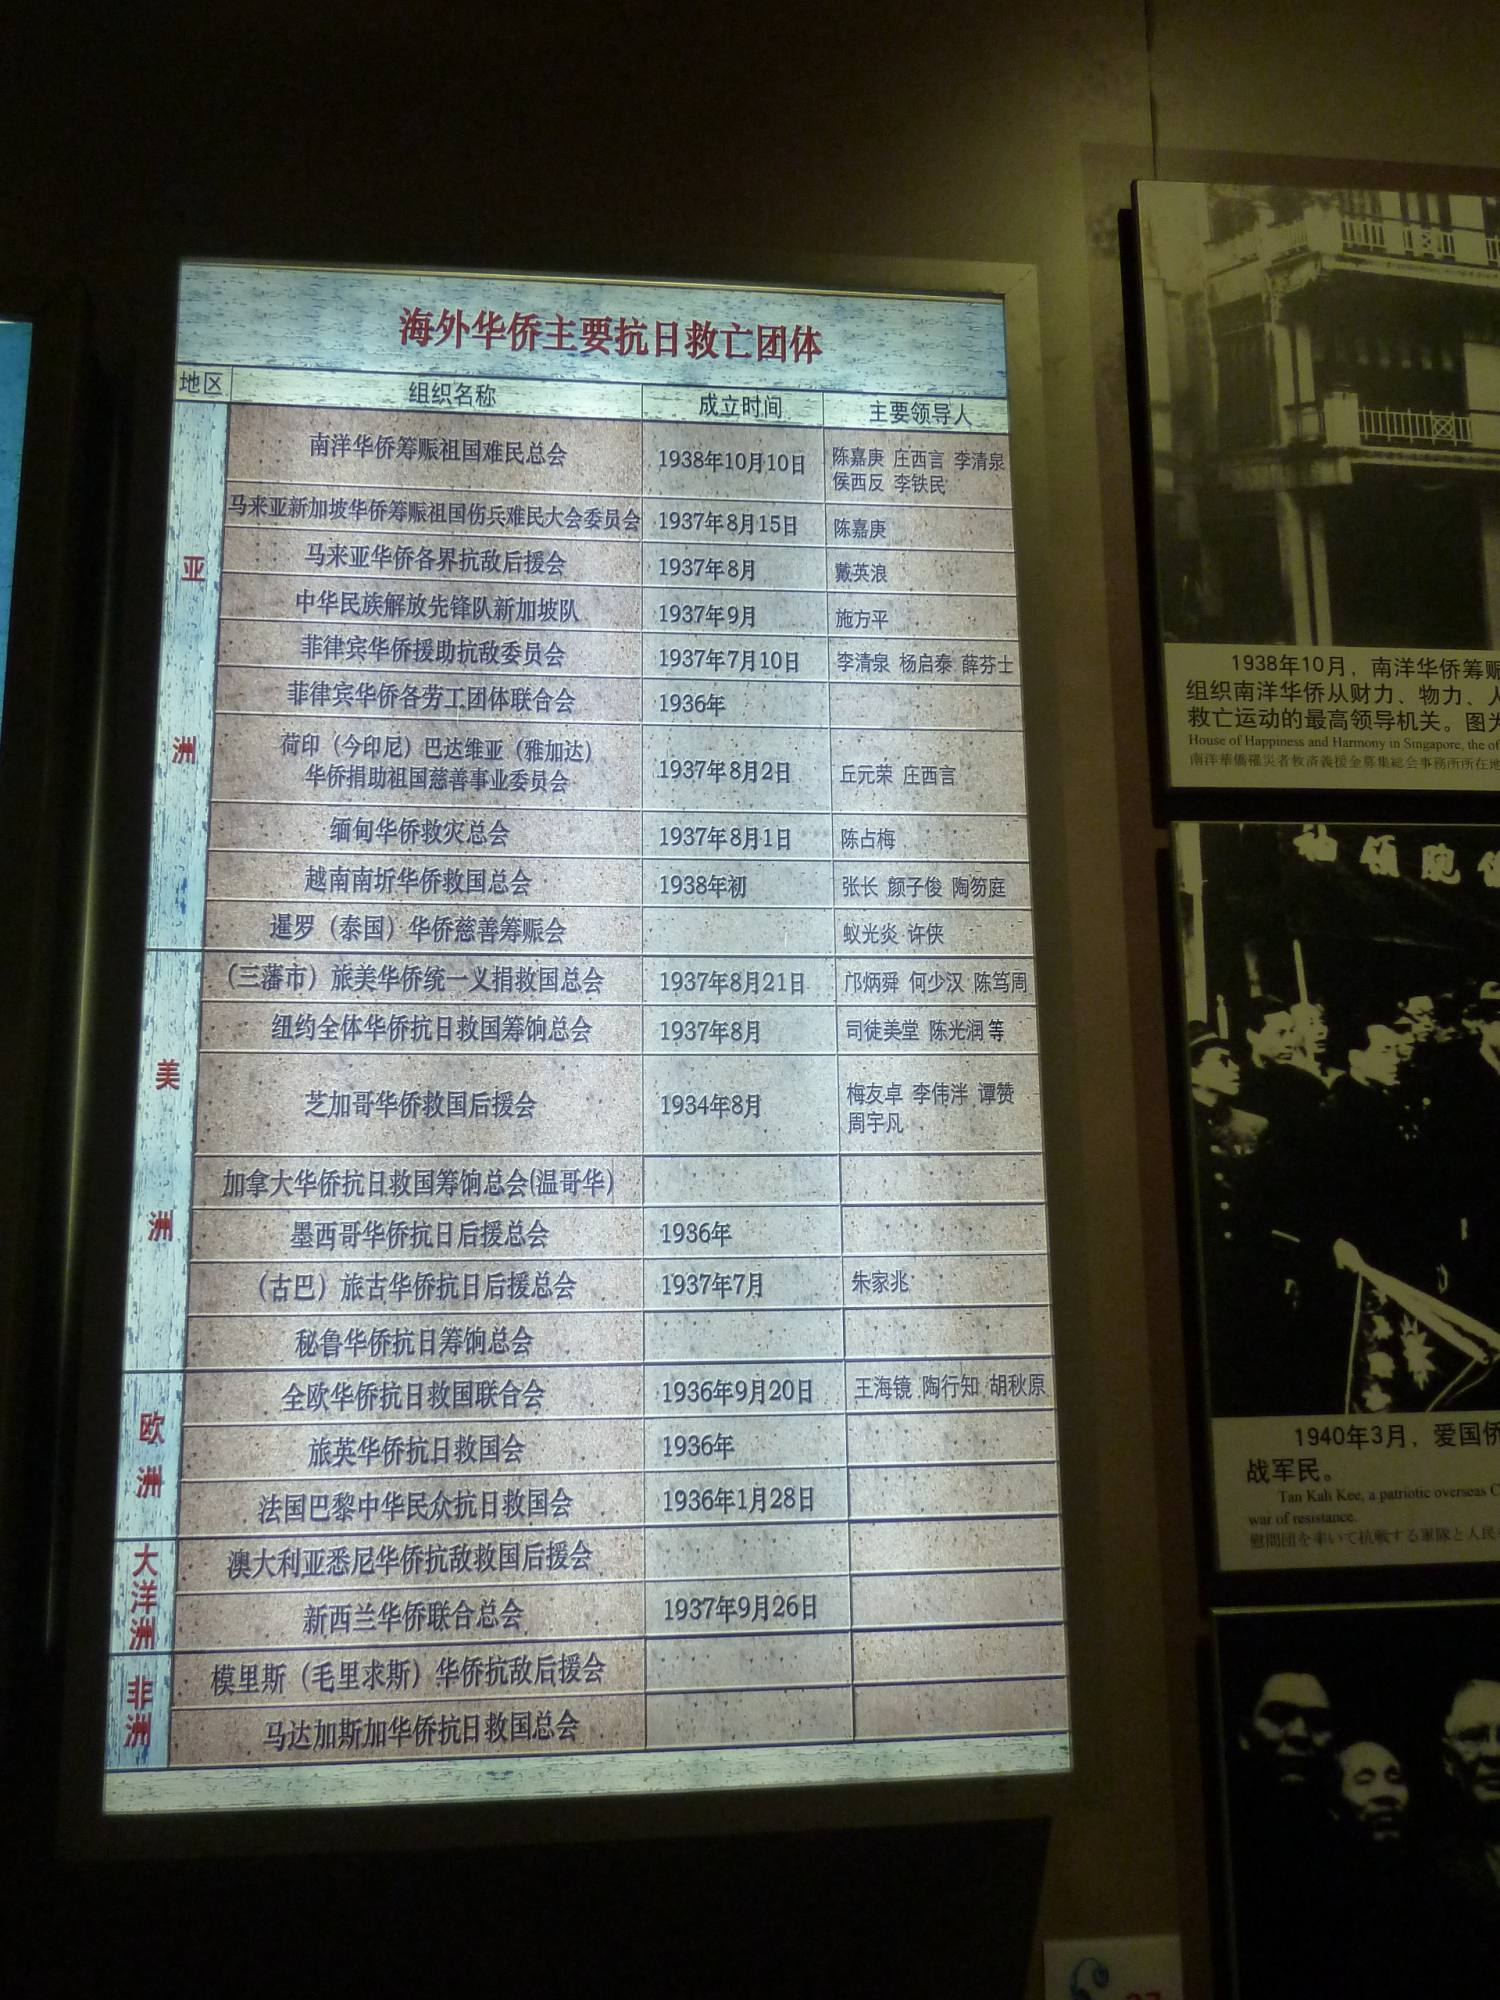 海外华侨主要抗日救亡团体
地区 组织名称 成立时间 主要领导人
亚洲
南洋华侨筹赈祖国难民总会 1938年10月10日 陈嘉庚 庄西言 李清泉
侯西反 李铁民
马来亚新加坡华侨筹赈祖国伤兵难民大会委员会 1937年8月15日 陈嘉庚
马来亚华侨各界抗敌后援会 1937年8月 戴英浪
中华民族解放先锋队新加坡队 1937年9月 施方平
菲律宾华侨援助抗敌委员会 1937年7月10日 李清泉 杨启泰 薛芬士
菲律宾华侨各劳工团体联合会 1936年
荷印（今印尼）巴达维亚（雅加达）
华侨捐助祖国慈善事业委员会 1937年8月2日 丘元荣 庄西言
缅甸华侨救灾总会 1937年8月1日 陈占梅
越南南圻华侨救国总会 1938年初 张长 颜子俊 陶笏庭
暹罗（泰国）华侨慈善筹赈会 蚁光炎 许侠
美洲
（三藩市）旅美华侨统一义捐救国总会 1937年8月21日 邝炳舜 何少汉 陈笃周
纽约全体华侨抗日救国筹饷总会 1937年8月 司徒美堂 陈光润 等
芝加哥华侨救国后援会 1934年8月 梅友卓 李伟泮 谭赞
周宇凡
加拿大华侨抗日救国筹饷总会(温哥华)
墨西哥华侨抗日后援总会 1936年
（古巴）旅古华侨抗日后援总会 1937年7月 朱家兆
秘鲁华侨抗日筹饷总会
欧洲
全欧华侨抗日救国联合会 1936年9月20日 王海镜 陶行知 胡秋原
旅英华侨抗日救国会 1936年
法国巴黎中华民众抗日救国会 1936年1月28日
大洋洲
澳大利亚悉尼华侨抗敌救国后援会
新西兰华侨联合总会 1937年9月26日
非洲
模里斯（毛里求斯）华侨抗敌后援会
马达加斯加华侨抗日救国总会
1938年10月，南洋华侨筹赈
组织南洋华侨从财力、物力、人
救亡运动的最高领导机关。图为
House of Happiness and Harmony in Singapore, the of
南洋華僑罹災者救済義援金募集総会事務所所在地
袖 領 胞 僑
1940年3月，爱国侨
战军民。
Tan Kah Kee, a patriotic overseas C
war of resistance.
慰問団を率いて抗戦する軍隊と人民